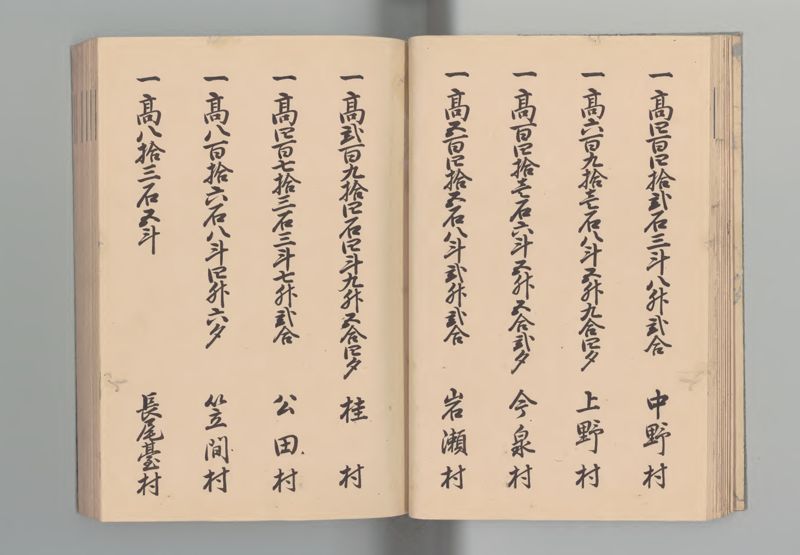 一高四百四拾弐石三斗八升弐合 中野村
一高六百九拾壱石八斗五升九合四夕 上野村
一高百四拾壱石六斗五升五合弐夕 今泉村
一高五百四拾五石八斗弐升弐合 岩瀬村
一高弐百九拾四石四斗九升五合四夕 桂村
一高四百七拾三石三斗七升弐合 公田村
一高八百拾六石八斗四升六夕 笠間村
一高八拾三石五斗 長尾臺村